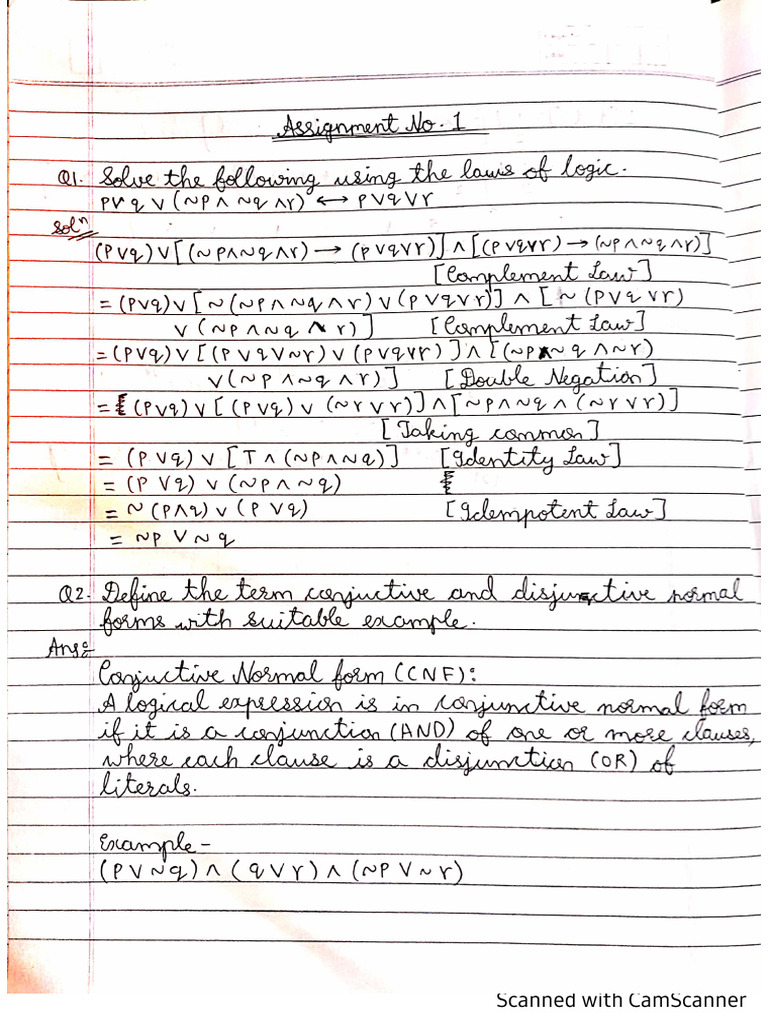 Assignment No. 1
Q1. Solve the following using the laws of logic.
p∨q ∨ (~p ∧ ~q ∧ r) ↔ p∨q∨r
Solⁿ
(p∨q)∨[(~p∧~q∧r) → (p∨q∨r)] ∧ [(p∨q∨r) → (~p∧~q∧r)]
[Complement Law]
= (p∨q)∨[~(~p∧~q∧r) ∨ (p∨q∨r)] ∧ [~(p∨q∨r)
∨ (~p ∧ ~q ∧ r)] [Complement Law]
= (p∨q)∨[(p∨q∨~r) ∨ (p∨q∨r)] ∧ [(~p∧~q∧~r)
∨(~p∧~q∧r)] [Double Negation]
= (p∨q)∨[(p∨q)∨(~r∨r)] ∧ [~p∧~q∧(~r∨r)]
[Taking common]
= (p∨q)∨[T∧(~p∧~q)] [Identity Law]
= (p∨q)∨(~p∧~q)
= ~(p∧q)∨(p∨q) [Idempotent Law]
= ~p ∨ ~q
Q2. Define the term conjuctive and disjunctive normal
forms with suitable example.
Ans:-
Conjuctive Normal form (CNF):
A logical expression is in conjunctive normal form
if it is a conjunction (AND) of one or more clauses,
where each clause is a disjunction (OR) of
literals.
Example-
(p∨~q)∧(q∨r)∧(~p∨~r)
Scanned with CamScanner